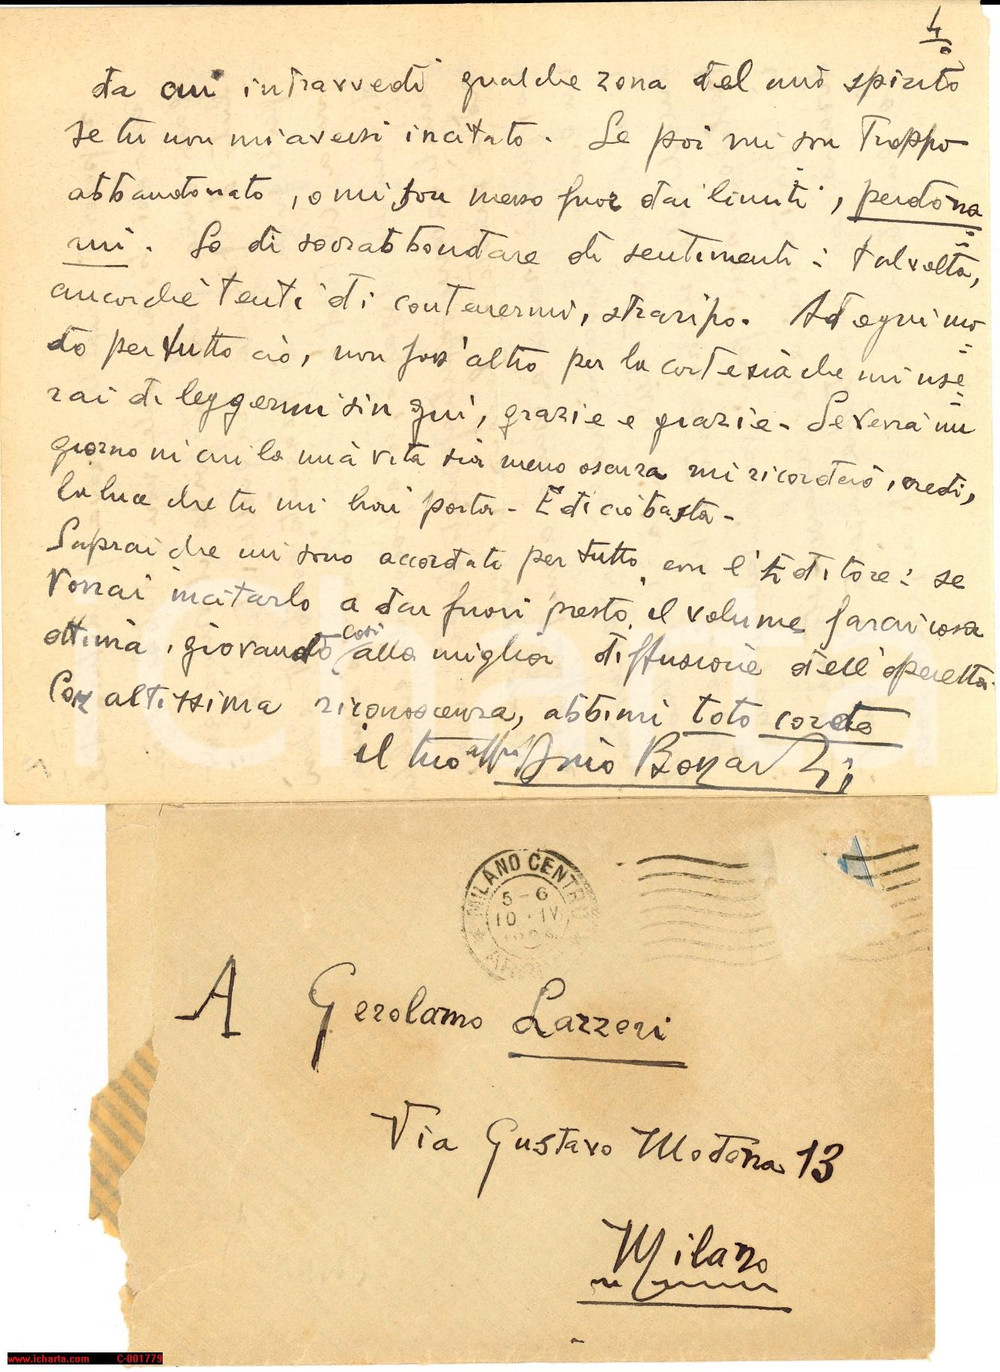 4°
da cui intravvedi qualche zona del mio spirito
se tu non mi avessi incitato. Se poi mi son troppo
abbandonato, o mi son messo fuor dai limiti, perdona
mi. So di sovrabbondare di sentimenti: talvolta,
ancorchè tenti di contenermi, straripo. Ad ogni mo
do per tutto ciò, non foss'altro per la cortesia che mi use
rai di leggermi sin qui, grazie e grazie. Se verrà un
giorno in cui la mia vita sia meno oscura mi ricorderò, credi,
la luce che tu mi hai porta. E di ciò basta.
Saprai che mi sono accordato per tutto con l'Editore: se
vorrai incitarlo a dar fuori presto il volume farai cosa
ottima, giovando così alla miglior diffusione dell'operetta.
Con altissima riconoscenza, abbimi toto corde
il tuo aff.mo Dino Bonardi
MILANO CENTRO
5-6
10·IV
A Gerolamo Lazzeri
Via Gustavo Modena 13
Milano
www.icharta.com C-001779